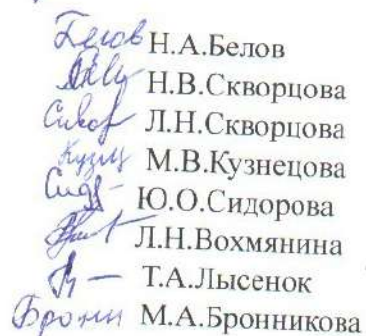 Н.А.Белов
Н.В.Скворцова
Л.Н.Скворцова
М.В.Кузнецова
Ю.О.Сидорова
Л.Н.Вохмянина
Т.А.Лысенок
М.А.Бронникова